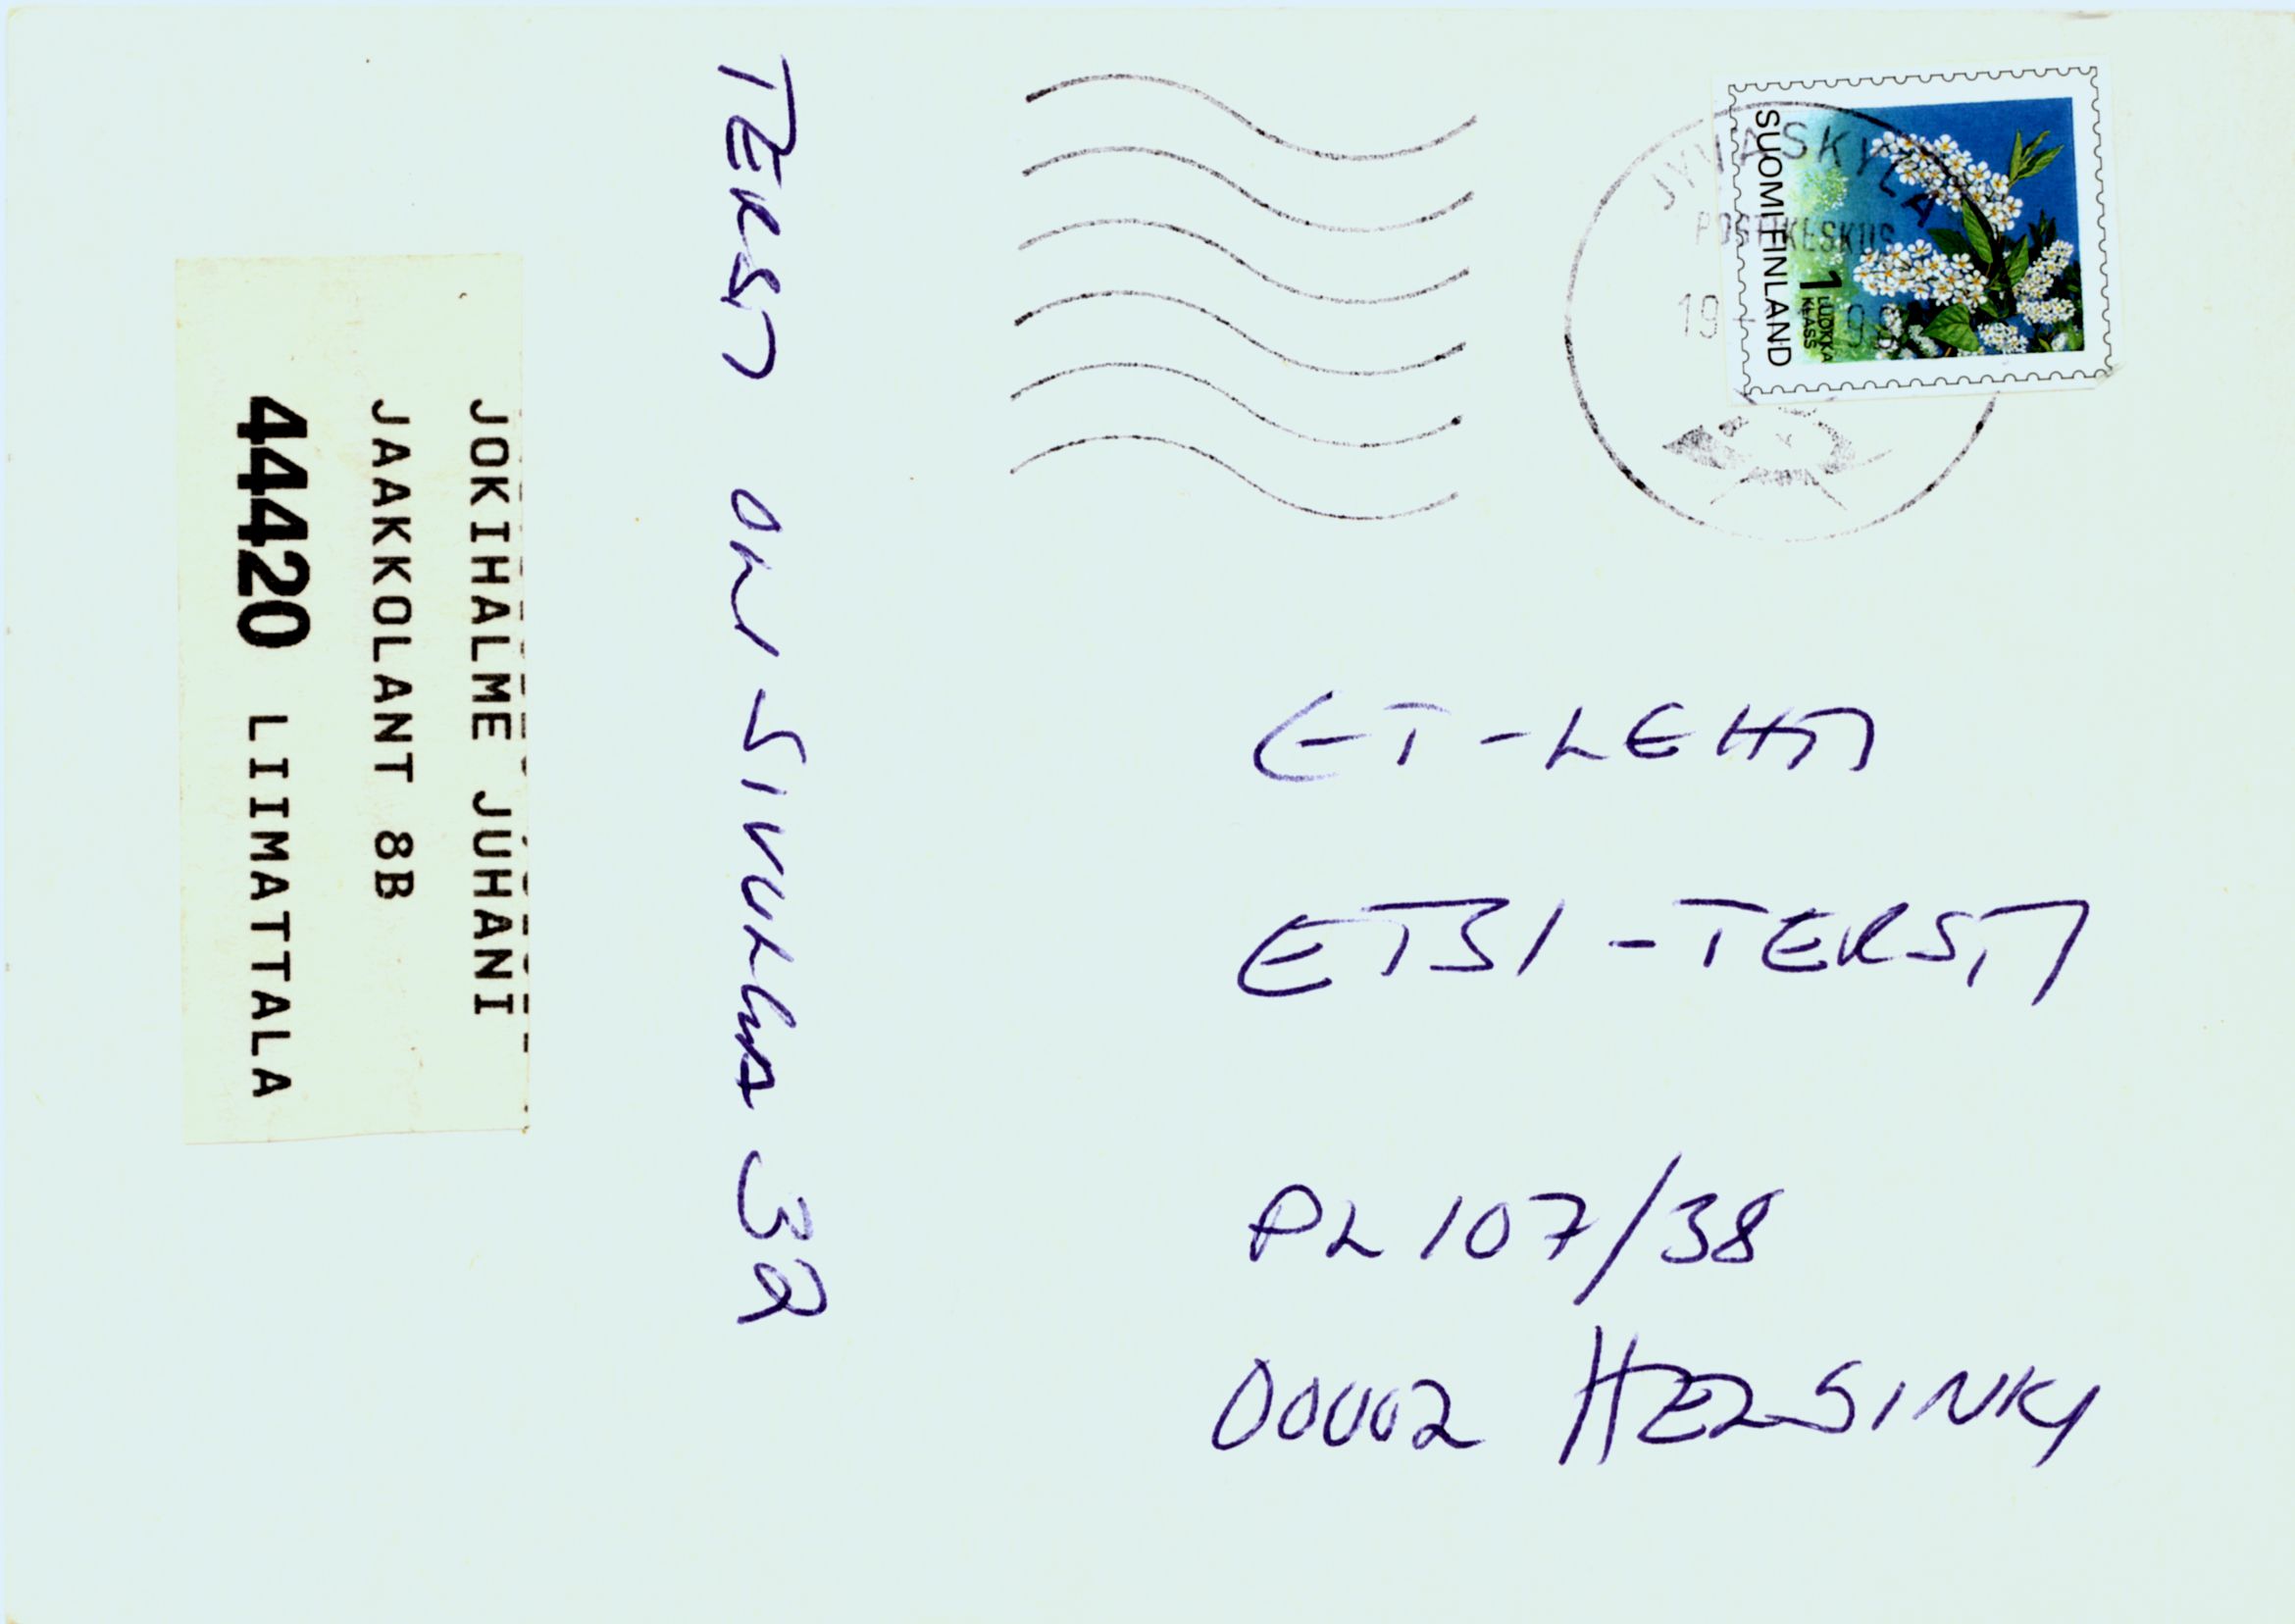 JOKIHALME JUHANI
JAAKKOLANT 8B
44420 LIIMATTALA
TERSTI ON SIVULLA 32
JYVÄSKYLÄ
POSTIKESKUS
19
SUOMI FINLAND
1 LUOKKA
KLASS
ET-LEHTI
ETSI-TERSTI
PL 107/38
00002 HELSINKI